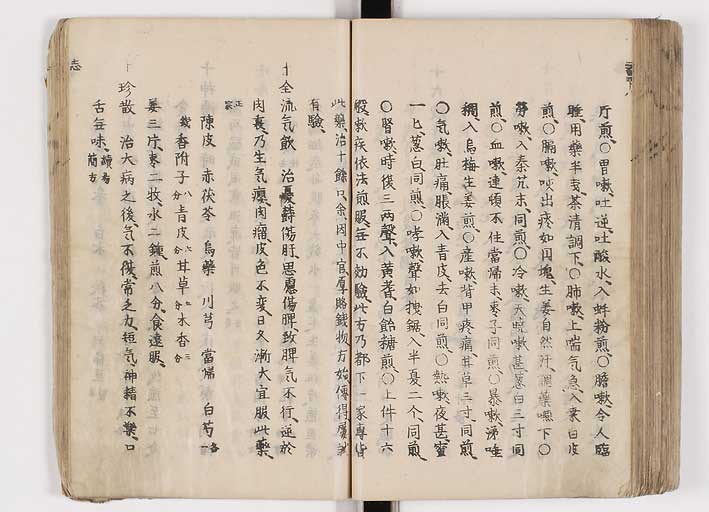 斤煎〇胃嗽吐逆吐酸水入蚌粉煎〇膽嗽令人臨
睡用藥半戔茶清調下〇肺嗽上喘气急入桒白皮
煎〇膈嗽咳出痰如圓塊生姜自然汁調藥嚥下〇
勞嗽入秦艽末同煎〇冷嗽天曉嗽甚葱白三寸同
煎〇血嗽連頓不住當帰末棗子同煎〇暴嗽涕唾
稠入烏梅生姜煎〇産嗽背甲疼痛甘草三寸同煎
〇气嗽肚痛脹満入青皮去白同煎〇熱嗽夜甚蜜
一匕葱白同煎〇哮嗽聲如拽鋸入半夏二个同煎
〇腎嗽時復三兩聲入黄耆白飴糖煎〇上件十六
般嗽疾依法煎服無不効驗此方乃都下一家專皆
此藥治十餘口余因中官厚賂錢物方始傳得屢試
有驗
十全流气飲 治憂欝傷肝思慮傷脾致脾气不行逆於
肉裏乃生气癭肉瘤皮色不変日久漸大宜服此藥
正宗
陳皮 赤茯苓 烏藥 川芎 當帰 白芍各一
錢香附子八分青皮六分甘草五分木香三分
姜三片棗二枚水二鍾煎八分食遠服
十珍散 治大病之後气不復常乏力短气神精不樂口
舌無味讀易簡方
志